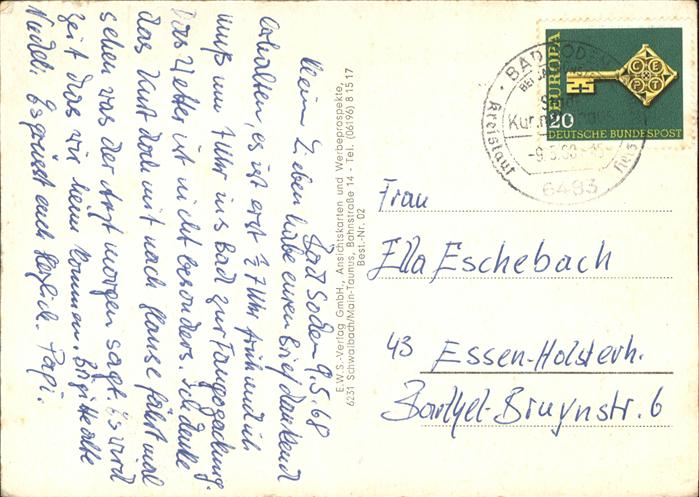 Bad Soden 9.5.68
Meine Lieben habe euren Brief dankend
erhalten, es ist erst ½ 7 Uhr früh und ich
muß um 7 Uhr ins Bad zur Fangopackung.
Das Wetter ist nicht besonders. Ich denke
das Kurt doch mit nach Hause fährt mal
sehen was der Arzt morgen sagt. Es wird
Zeit das wir heim kommen. Brigitte alte
Nudel. Es grüsst euch herzlich. Papi.
E.W.S.-Verlag GmbH., Ansichtskarten und Werbeprospekte,
6231 Schwalbach/Main-Taunus, Bahnstraße 14 - Tel. (06196) 8 15 17
Best.-Nr. 02
EUROPA
CEPT
20
DEUTSCHE BUNDESPOST
BAD SODEN
-9.5.68
6483
Frau
Ella Eschebach
43 Essen-Holsterh.
Barthel-Bruynstr. 6